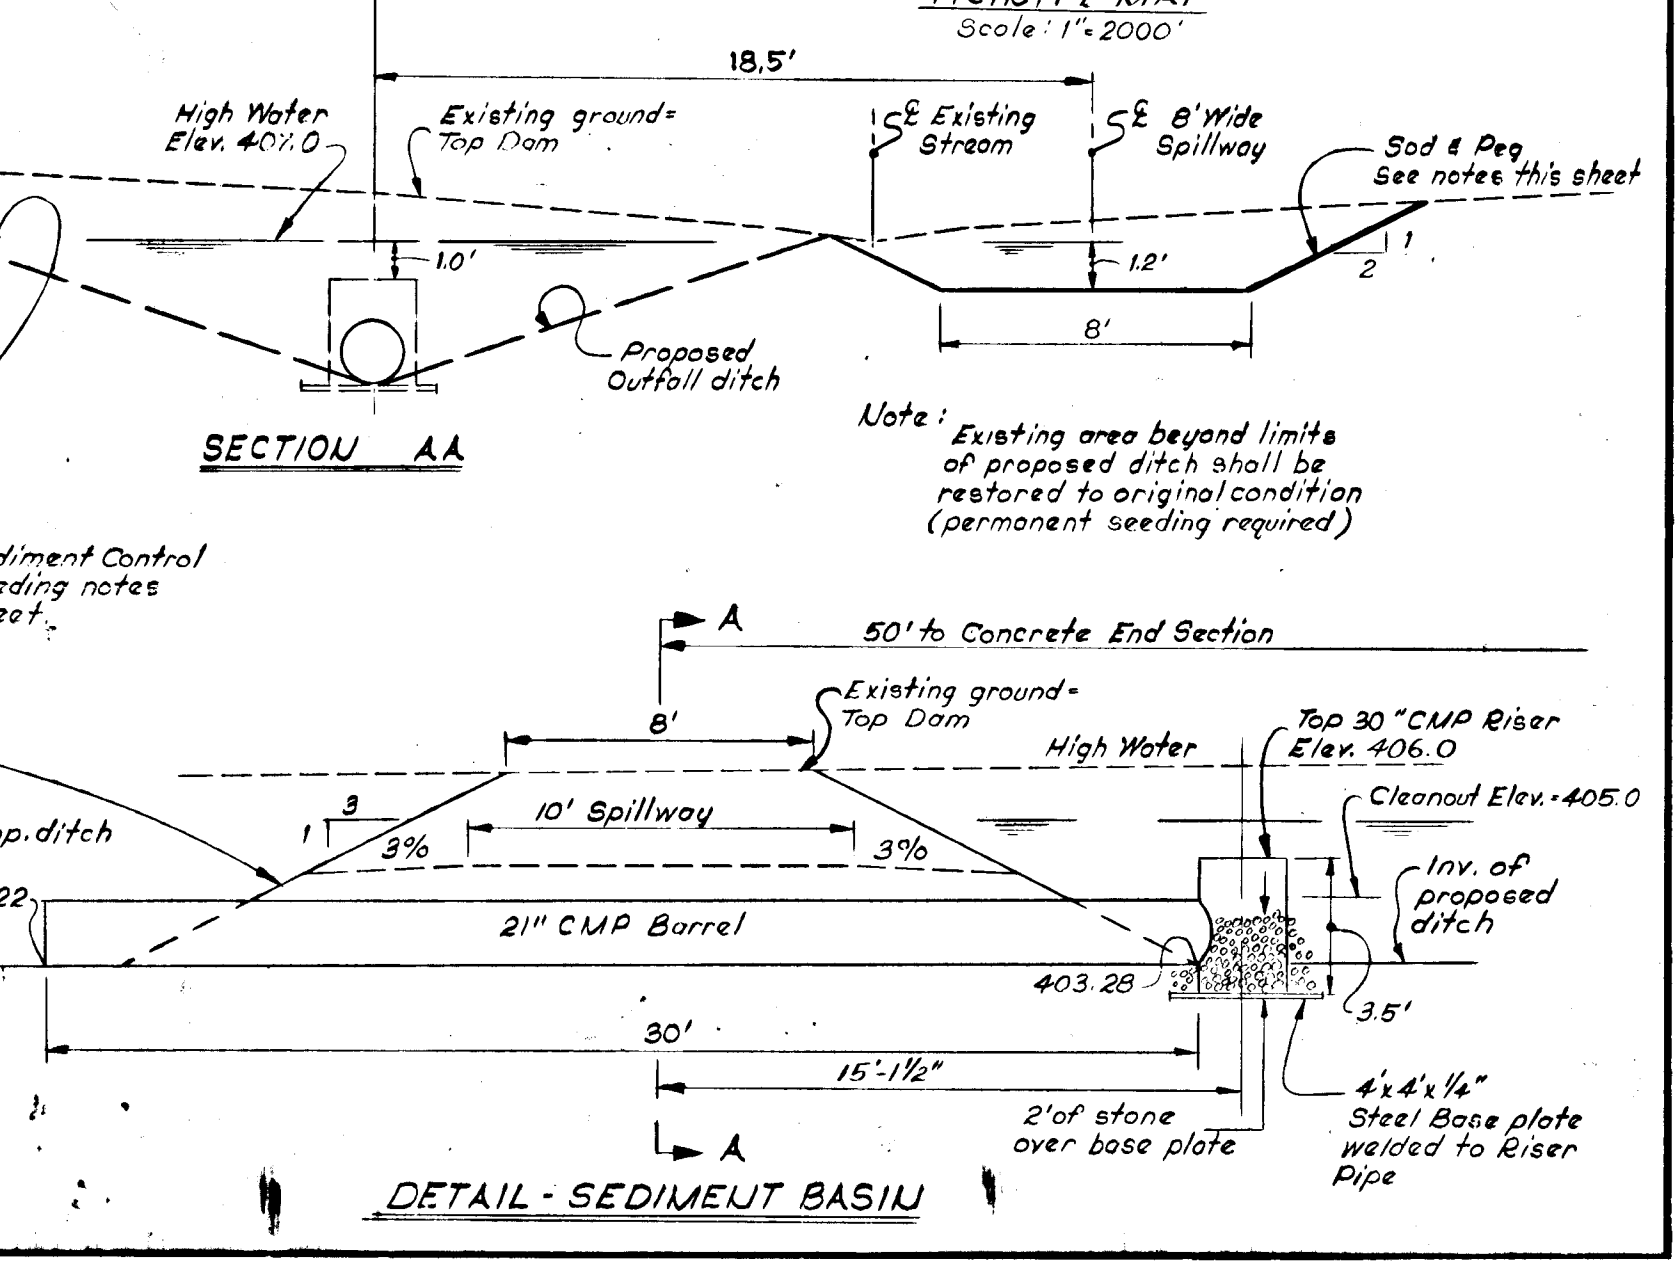 Scale: 1"=2000'
18.5'
High Water
Elev. 407.0
Existing ground=
Top Dam
℄ Existing
Stream
℄ 8' Wide
Spillway
Sod & Peg
See notes this sheet
1.0'
1.2'
1
2
8'
Proposed
Outfall ditch
SECTION AA
Note:
Existing area beyond limits
of proposed ditch shall be
restored to original condition
(permanent seeding required)
diment Control
eding notes
eet.
A
50' to Concrete End Section
Existing ground=
Top Dam
8'
High Water
Top 30" CMP Riser
Elev. 406.0
Cleanout Elev.=405.0
3
1
10' Spillway
3%
3%
op. ditch
Inv. of
proposed
ditch
22
21" CMP Barrel
403.28
3.5'
30'
15'-1½"
2' of stone
over base plate
4'x4'x¼"
Steel Base plate
welded to Riser
Pipe
A
DETAIL - SEDIMENT BASIN